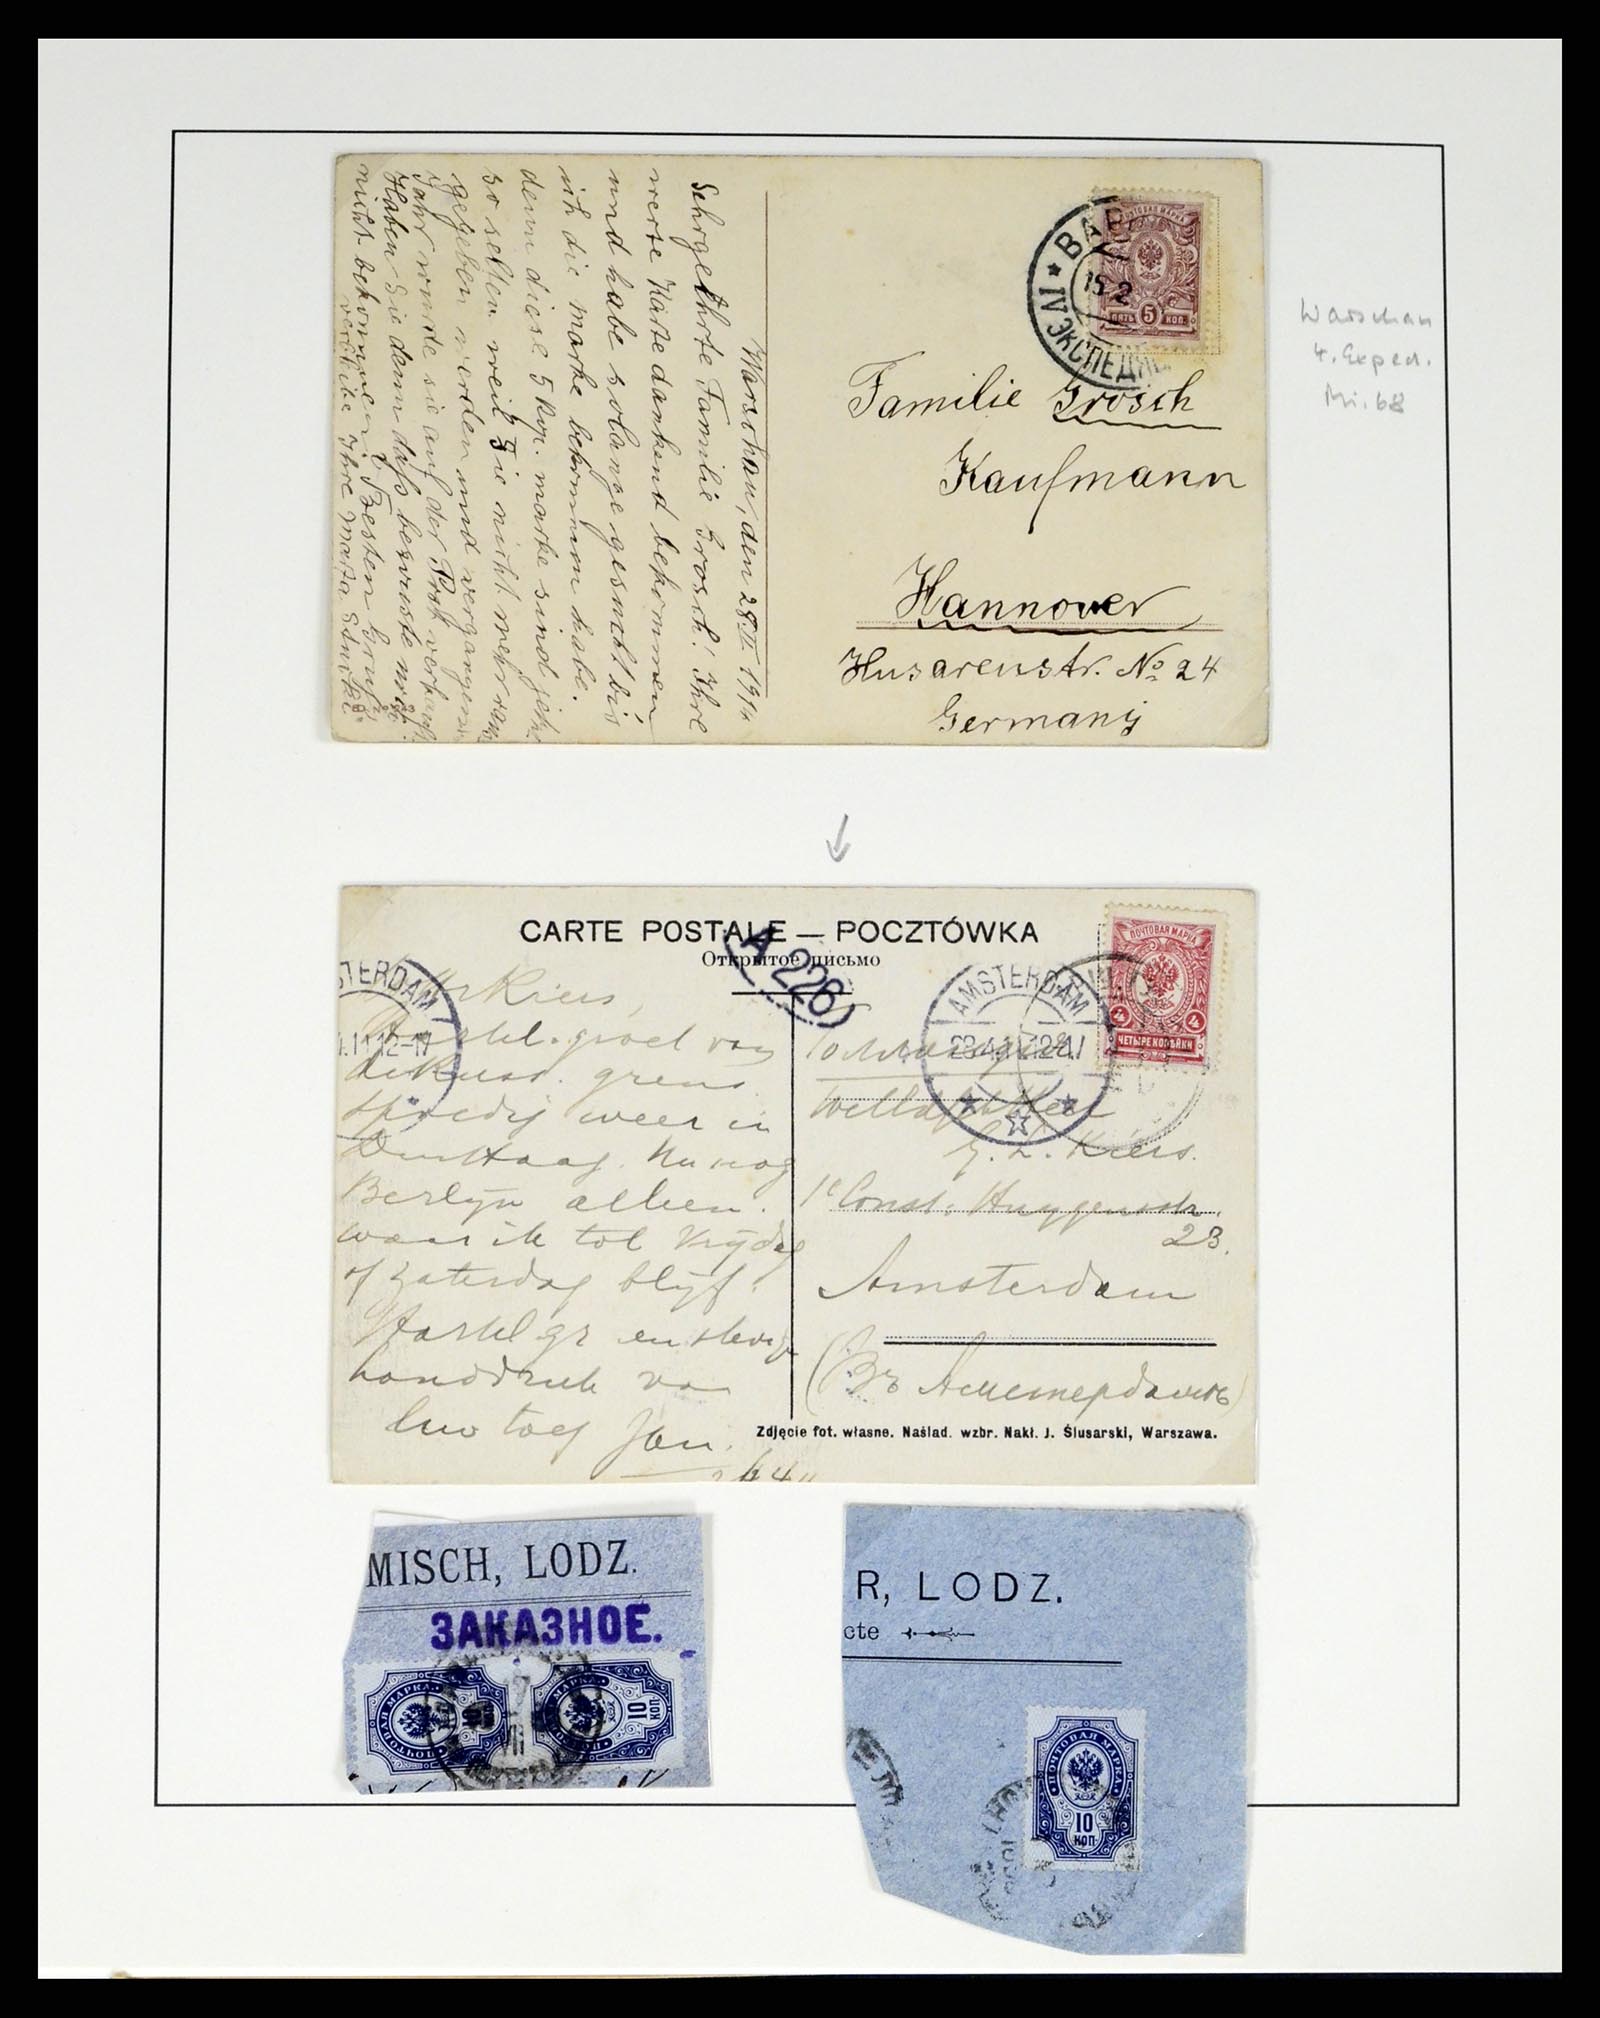 Warschau, den 28.II. 1914
Sehrgeehrte Familie Grosch! Ihre
werte Karte dankend bekommen
und habe solange gesucht bis
ich die marke bekommen habe.
denn diese 5 kop. marke sind jetzt
so selten weil Sie nicht mehr
gegeben werden und vergangenes
Jahr wurde sie auf der Post verkauft.
Haben Sie denn dass bewusste noch
nicht bekommen. Besten Gruss
verbleibe Ihre Marta
ПОЧТОВАЯ МАРКА
5
ПЯТЬ КОП.
15 2
IV ЭКСПЕДИЦ
Familie Grosch
Kaufmann
Hannover
Husarenstr. No 24
Germany
Warschau
4. Exped.
Mi. 68
CARTE POSTALE — POCZTÓWKA
Открытое письмо
A 226
STERDAM
AMSTERDAM
ПОЧТОВАЯ МАРКА
4 4
ЧЕТЫРЕ КОПѢЙКИ
Kiers,
Hartel. groet van
de Russ. grens
spoedig weer in
Den Haag. Nu nog
Berlijn alleen.
waar ik tot Vrijdag
of Zaterdag blijf.
Hartel gr en stevige
handdruk van
Jan.
G. L. Kiers.
1e Const. Huygensstr.
23.
Amsterdam
(Въ Амстердамъ)
Zdjęcie fot. własne. Naślad. wzbr. Nakł. J. Ślusarski, Warszawa.
MISCH, LODZ.
ЗАКАЗНОЕ.
ПОЧТОВАЯ МАРКА
10 КОП
ПОЧТОВАЯ МАРКА
10 КОП
R, LODZ.
cte
ПОЧТОВАЯ МАРКА
10
КОП